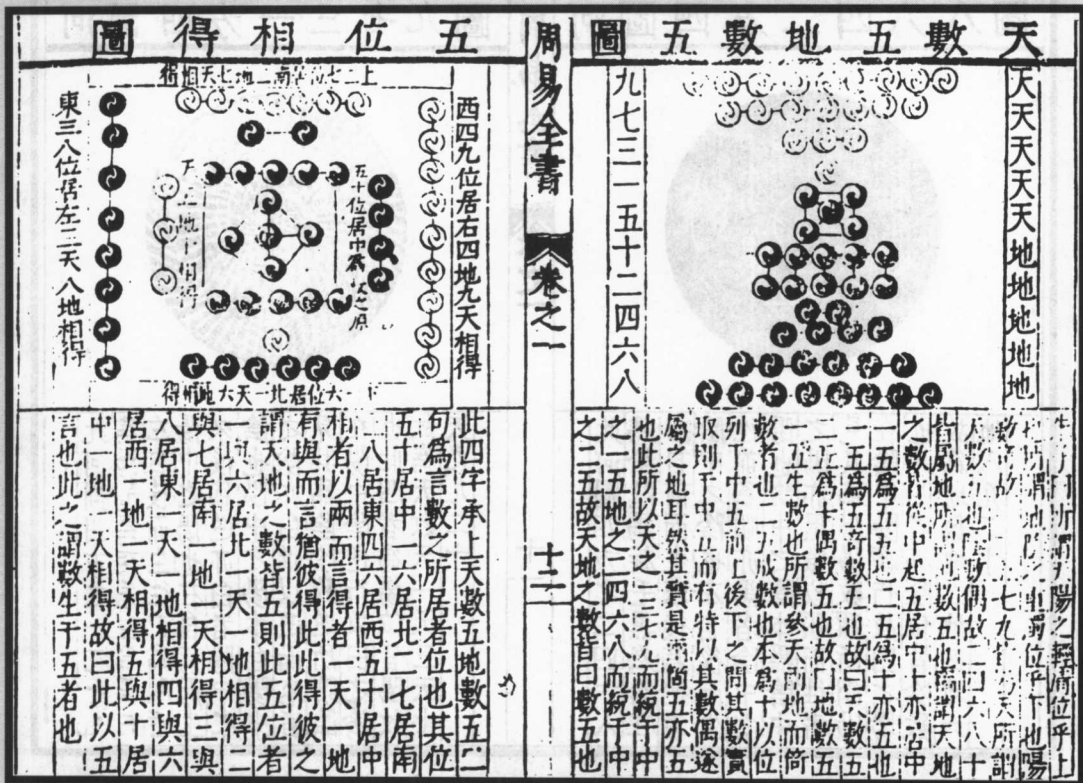 天數五地數五圖
天天天天天地地地地地
九七三一五十二四六八
所謂陽之輕清位乎上
所謂地陰之重濁位乎下也陽
數奇故七九皆爲天所謂
天數五也陰數偶故二四六八十
皆屬地所謂地數五也竊謂天地
之數皆從中起五居中十亦居中
一五爲五五也二五爲十亦五也
一五爲五奇數五也故曰天數五
二五爲十偶數五也故曰地數五
一五生數也所謂參天兩地而倚
數者也二五成數也本爲十以位
列于中五前上後下之間其數實
取則于中五而有特以其數偶遂
屬之地耳然其實是兩箇五亦五
也此所以天之一三七九而統于中
之一五地之二四六八而統于中
之二五故天地之數皆曰數五也
周易全書
卷之一
十二
五位相得圖
上二七位居南二地七天相得
西四九位居右四地九天相得
五十位居中爲之原
天五地十相得
東三八位居左三天八地相得
下一六位居北一天六地相得
此四字承上天數五地數五二
句爲言數之所居者位也其位
五十居中一六居北二七居南
八居東四六居西五十居中
相者以兩而言得者一天一地
有與而言猶彼得此此得彼之
謂天地之數皆五則此五位者
一與六居北一天一地相得二
與七居南一地一天相得三與
八居東一天一地相得四與六
居西一地一天相得五與十居
中一地一天相得故曰此以五
言也此之謂數生于五者也